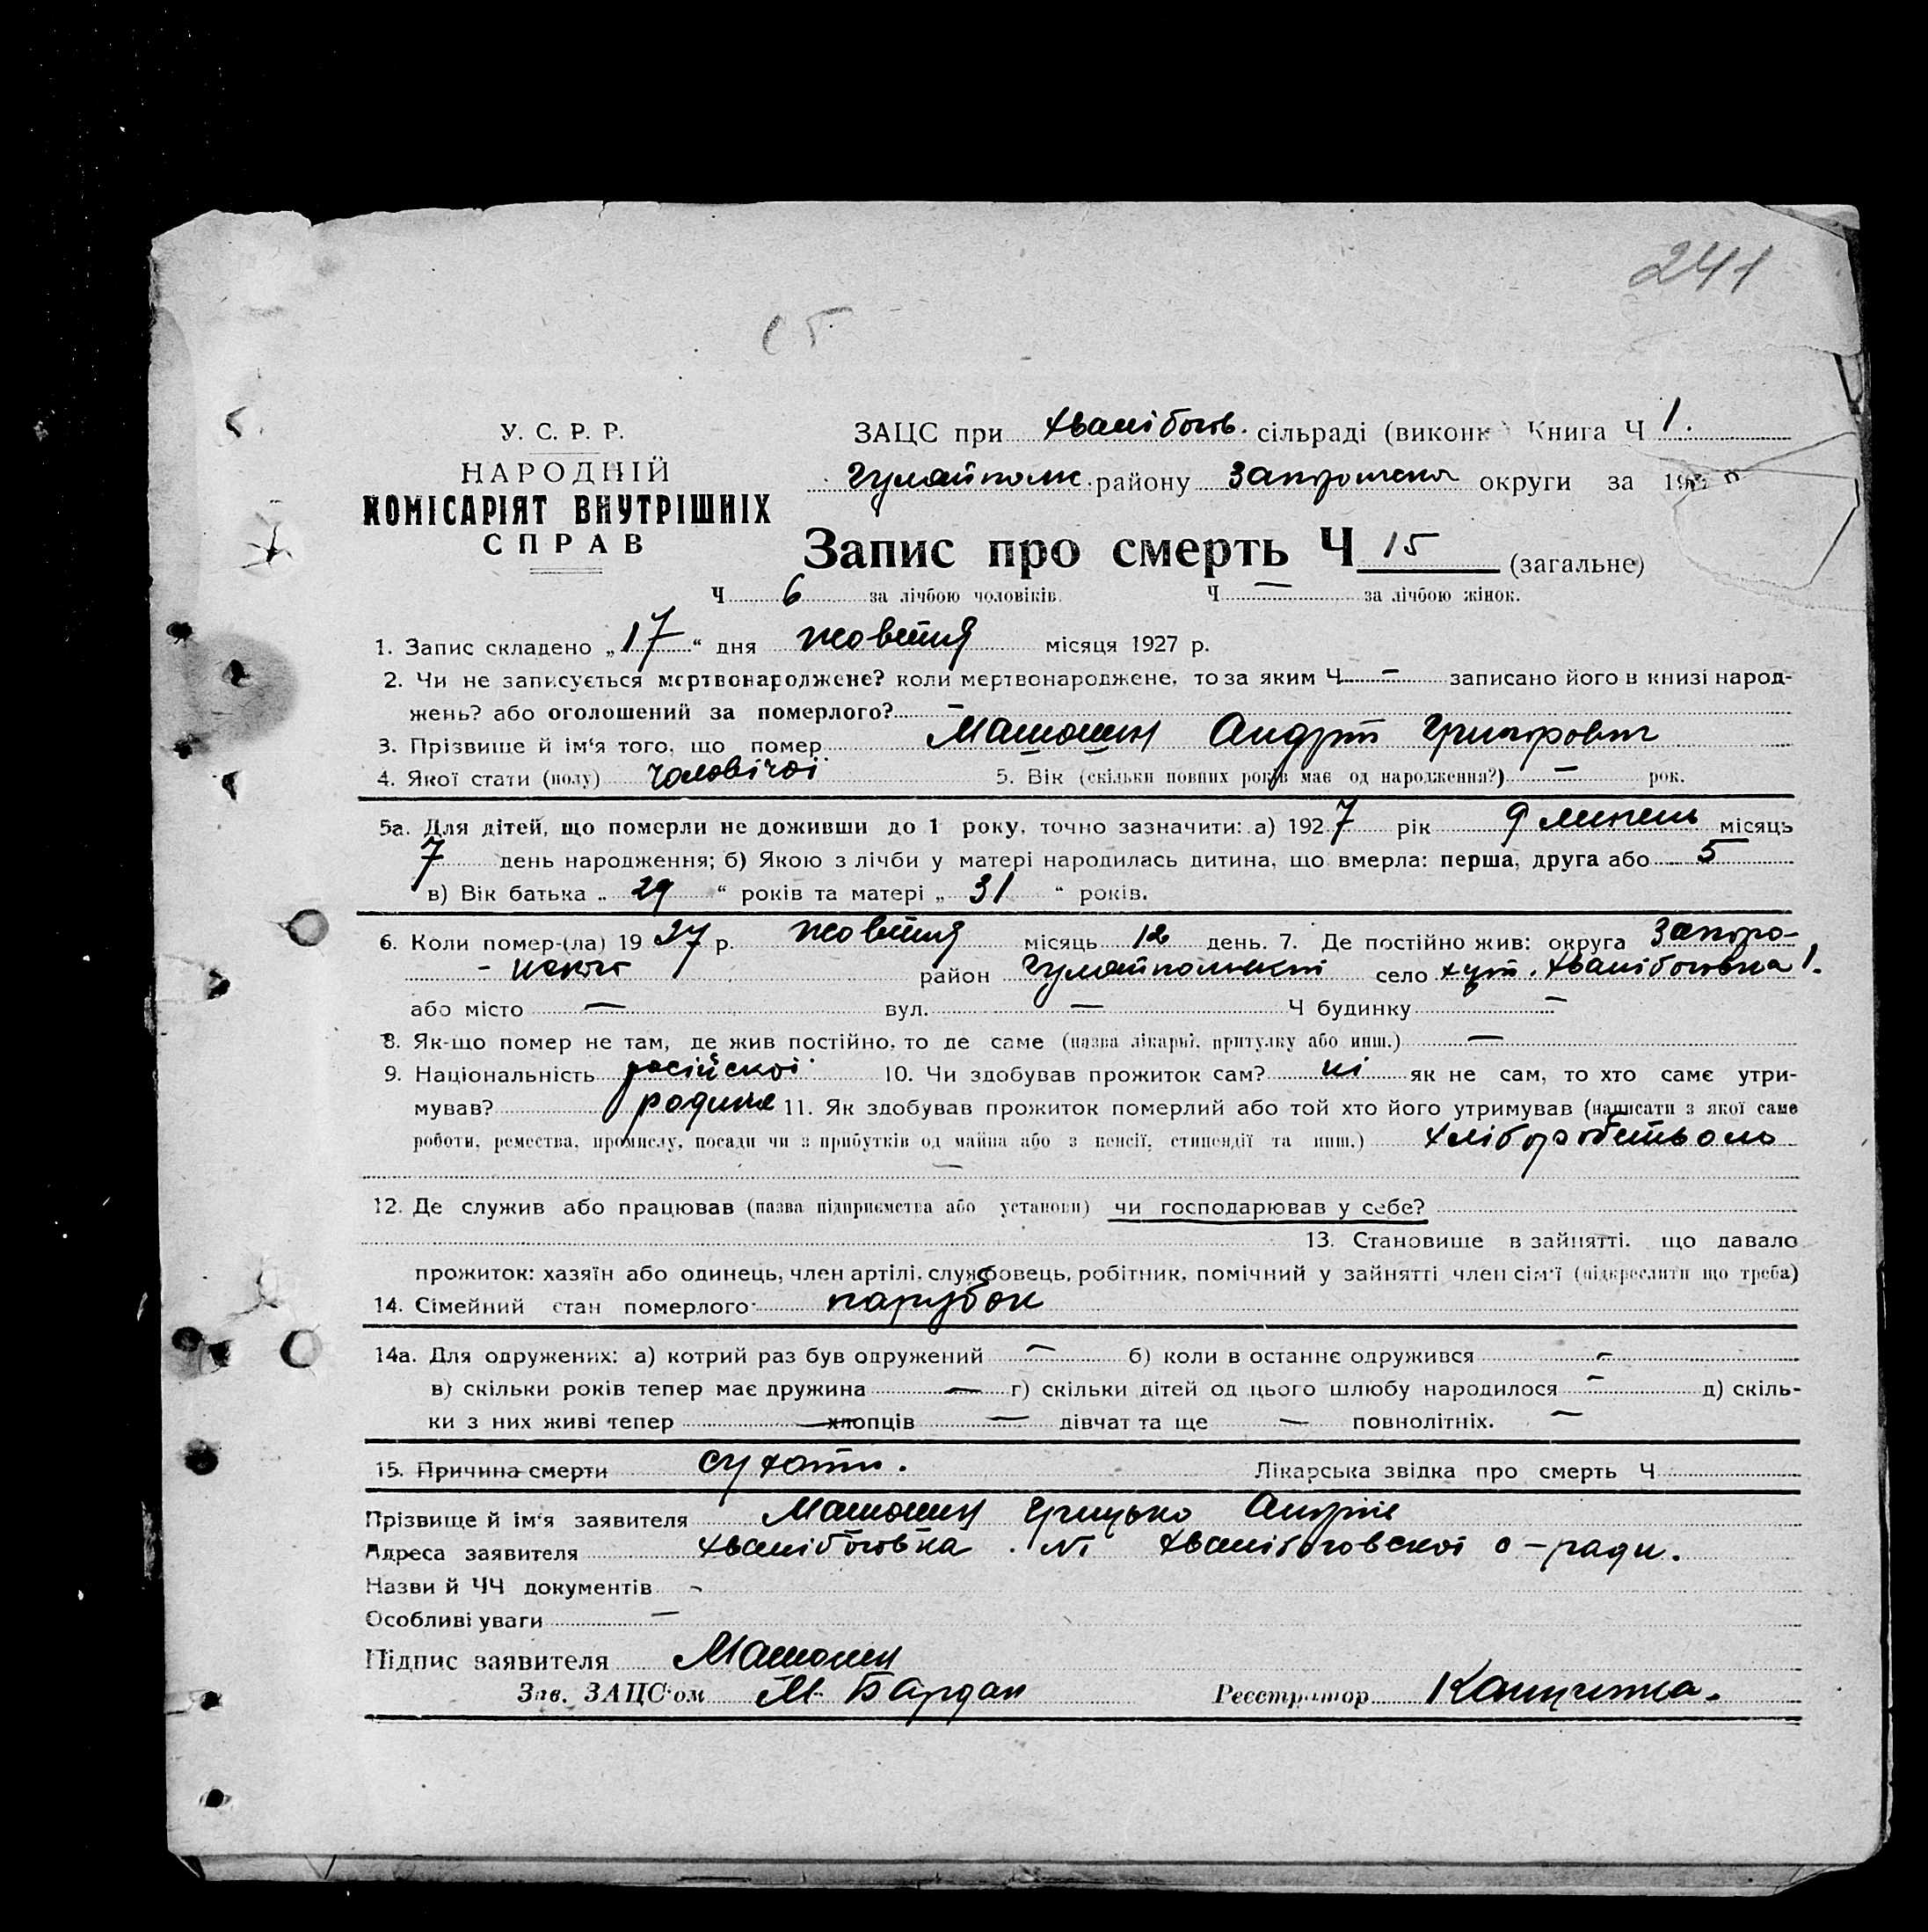 241
У. С. Р. Р.
НАРОДНІЙ
КОМІСАРІЯТ ВНУТРІШНІХ
СПРАВ
ЗАЦС при Хванібогов. сільраді (виконк ) Книга Ч 1.
Гуляйпольс. району Запорожська округи за 192 р
Запис про смерть Ч 15 (загальне)
Ч 6 за лічбою чоловіків. Ч — за лічбою жінок.
1. Запис складено „ 17 “ дня жовтня місяця 1927 р.
2. Чи не записується мертвонароджене? коли мертвонароджене, то за яким Ч — записано його в книзі народ-
жень? або оголошений за померлого? —
3. Прізвище й ім'я того, що помер Матюшин Андрій Григорович
4. Якої стати (полу) чоловічої 5. Вік (скільки повних років має од народження?) — рок.
5а. Для дітей, що померли не доживши до 1 року, точно зазначити: а) 1927 рік липень місяць
7 день народження; б) Якою з лічби у матері народилась дитина, що вмерла: перша, друга або 5
в) Вік батька „ 29 “ років та матері „ 31 “ років.
6. Коли помер-(ла) 1927 р. жовтня місяць 12 день. 7. Де постійно жив: округа Запоро-
- район Гуляйпольский село хут. Хванібоговка 1.
або місто — вул. — Ч будинку —
8. Як-що помер не там, де жив постійно, то де саме (назва лікарні, притулку або инш.) —
9. Національність російскої 10. Чи здобував прожиток сам? ні як не сам, то хто саме утри-
мував? родина 11. Як здобував прожиток померлий або той хто його утримував (написати з якої саме
роботи, ремества, промислу, посади чи з прибутків од майна або з пенсії, стипендії та инш.) хліборобством
—
12. Де служив або працював (назва підприємства або установи) чи господарював у себе?
13. Становище в зайнятті, що давало
прожиток: хазяїн або одинець, член артілі, службовець, робітник, помічний у зайнятті член сім'ї (підкреслити що треба)
14. Сімейний стан померлого парубок
14а. Для одружених: а) котрий раз був одружений — б) коли в останнє одружився —
в) скільки років тепер має дружина — г) скільки дітей од цього шлюбу народилося — д) скіль-
ки з них живі тепер — хлопців — дівчат та ще — повнолітніх. —
15. Причина смерти сухоти. Лікарська звідка про смерть Ч
Прізвище й ім'я заявителя Матюшин Грицько Андрів
Адреса заявителя Хванібоговка №1 Хванібоговскої с-ради.
Назви й ЧЧ документів -
Особливі уваги —
Підпис заявителя Матюшин
Зав. ЗАЦС'ом М. Бардан Реєстратор